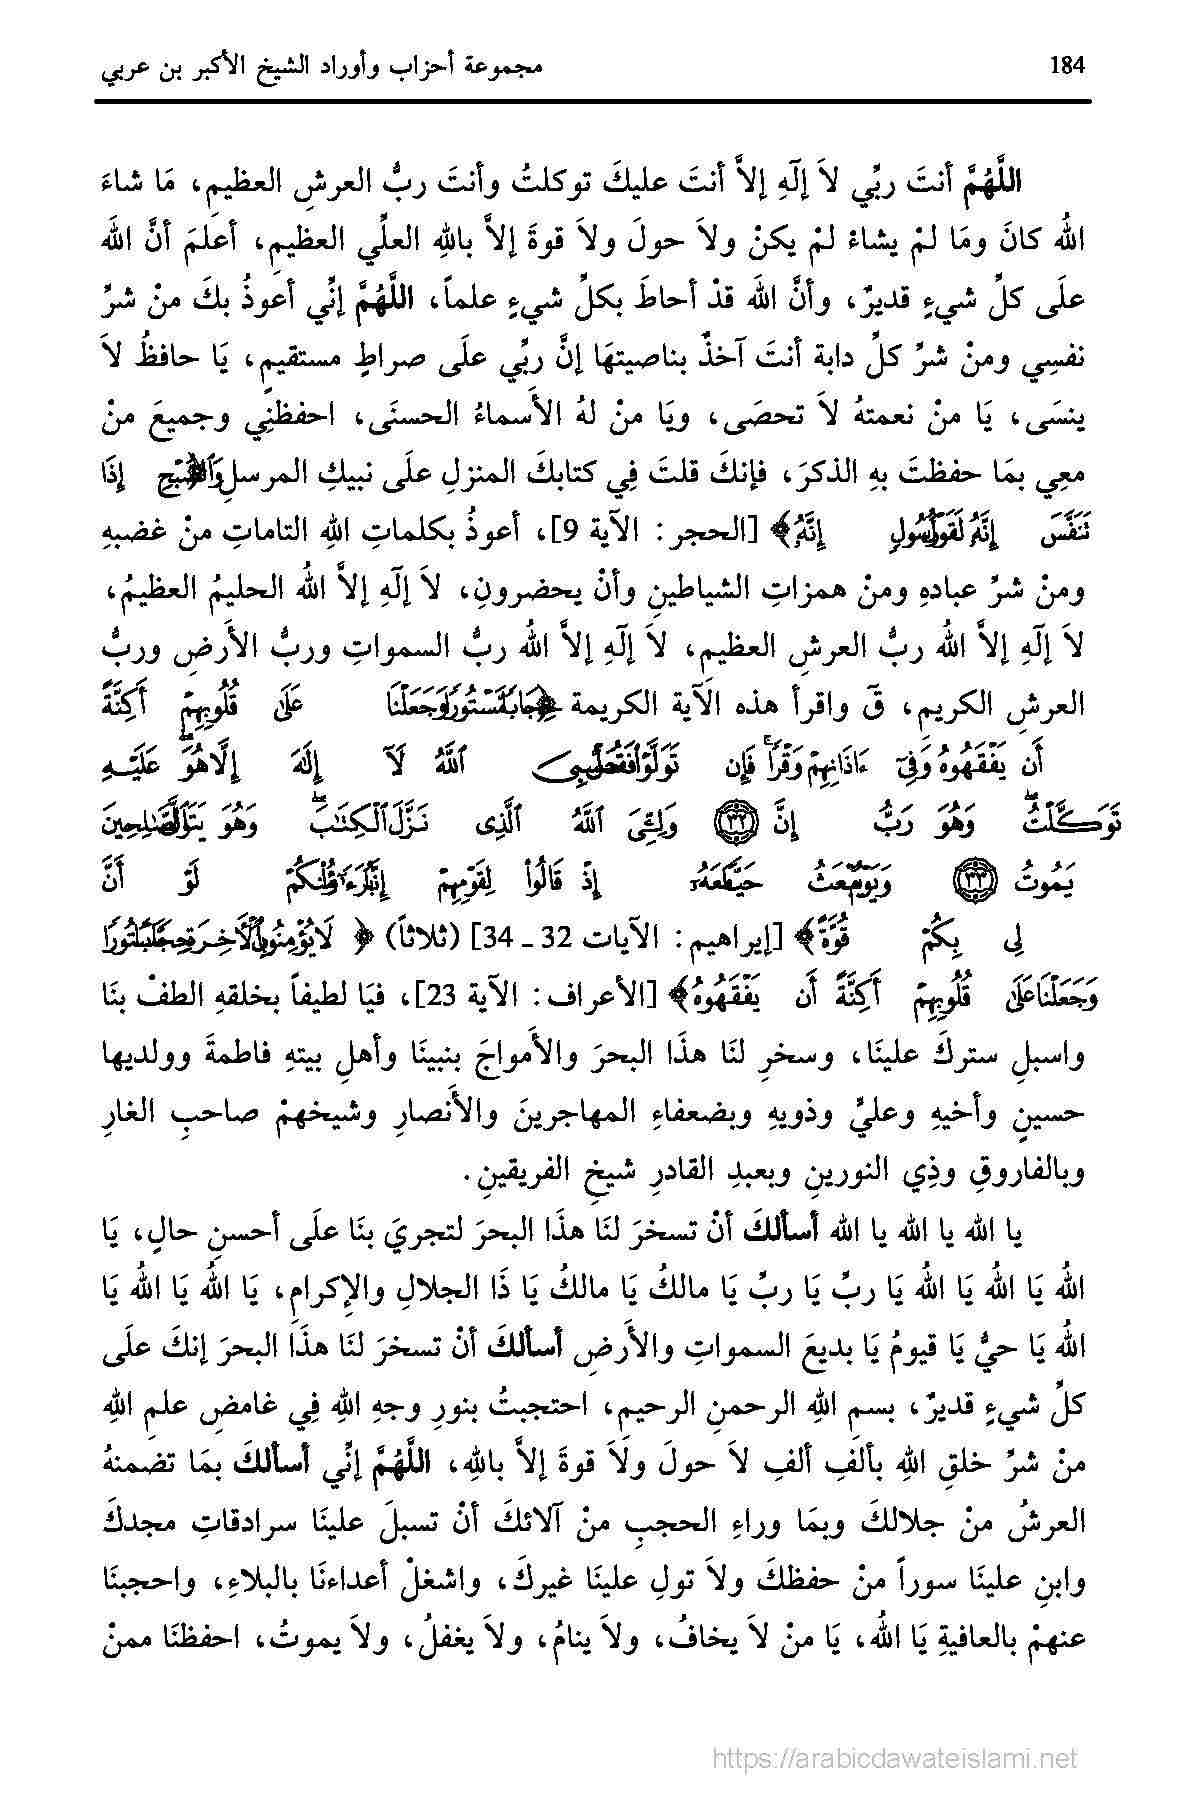 184 مجموعة أحزاب وأوراد الشيخ الأكبر بن عربي
اللَّهُمَّ أنتَ ربِّي لاَ إلَهَ إلاَّ أنتَ عليكَ توكلتُ وأنتَ ربُّ العرشِ العظيمِ، مَا شاءَ
اللهُ كانَ ومَا لمْ يشاءْ لمْ يكنْ ولاَ حولَ ولاَ قوةَ إلاَّ باللهِ العلِّي العظيمِ، أعلَمَ أنَّ اللهَ
علَى كلِّ شيءٍ قديرٌ، وأنَّ اللهَ قدْ أحاطَ بكلِّ شيءٍ علماً، اللَّهُمَّ إنِّي أعوذُ بكَ منْ شرِّ
نفسِي ومنْ شرِّ كلِّ دابة أنتَ آخذٌ بناصيتهَا إنَّ ربِّي علَى صراطٍ مستقيمٍ، يَا حافظُ لاَ
ينسَى، يَا منْ نعمتهُ لاَ تحصَى، ويَا منْ لهُ الأَسماءُ الحسنَى، احفظنِي وجميعَ منْ
معِي بمَا حفظتَ بهِ الذكرَ، فإنكَ قلتَ فِي كتابكَ المنزلِ علَى نبيكِ المرسلِ ﴿وَالصُّبْحِ إِذَا
تَنَفَّسَ إِنَّهُ لَقَوْلُ رَسُولٍ إِنَّهُ﴾ [الحجر: الآية 9]، أعوذُ بكلماتِ اللهِ التاماتِ منْ غضبهِ
ومنْ شرِّ عبادهِ ومنْ همزاتِ الشياطينِ وأنْ يحضرونِ، لاَ إلَهِ إلاَّ اللهُ الحليمُ العظيمُ،
لاَ إلَهِ إلاَّ اللهُ ربُّ العرشِ العظيمِ، لاَ إلَهِ إلاَّ اللهُ ربُّ السمواتِ وربُّ الأَرضِ وربُّ
العرشِ الكريمِ، قَ واقرأ هذه الآية الكريمة ﴿حِجَابًا مَّسْتُورًا وَجَعَلْنَا عَلَىٰ قُلُوبِهِمْ أَكِنَّةً
أَن يَفْقَهُوهُ وَفِىٓ ءَاذَانِهِمْ وَقْرًا ۚ فَإِن تَوَلَّوْا فَقُلْ حَسْبِىَ ٱللَّهُ لَآ إِلَٰهَ إِلَّا هُوَ ۖ عَلَيْهِ
تَوَكَّلْتُ ۖ وَهُوَ رَبُّ إِنَّ ٣٢ وَلِـِّۧىَ ٱللَّهُ ٱلَّذِى نَزَّلَ ٱلْكِتَٰبَ ۖ وَهُوَ يَتَوَلَّى ٱلصَّٰلِحِينَ
يَمُوتُ ٣٣ وَيَوْمَ يُبْعَثُ حَيًّا مَعَهُۥ إِذْ قَالُوا۟ لِقَوْمِهِمْ إِنَّا بُرَءَٰٓؤُا۟ مِنكُمْ لَوْ أَنَّ
لِى بِكُمْ قُوَّةً﴾ [إبراهيم: الآيات 32 ـ 34] (ثلاثاً) ﴿لَا يُؤْمِنُونَ بِٱلْأَخِرَةِ حِجَابًا مَّسْتُورًا
وَجَعَلْنَا عَلَىٰ قُلُوبِهِمْ أَكِنَّةً أَن يَفْقَهُوهُ﴾ [الأعراف: الآية 23]، فيَا لطيفاً بخلقهِ الطفْ بنَا
واسبلِ ستركَ علينَا، وسخرِ لنَا هذَا البحرَ والأَمواجَ بنبينَا وأهلِ بيتهِ فاطمةَ وولديها
حسينٍ وأخيهِ وعليٍّ وذويهِ وبضعفاءِ المهاجرينَ والأَنصارِ وشيخهمْ صاحبِ الغارِ
وبالفاروقِ وذِي النورينِ وبعبدِ القادرِ شيخِ الفريقينِ.
يا الله يا الله يا الله أسألكَ أنْ تسخرَ لنَا هذَا البحرَ لتجريَ بنَا علَى أحسنِ حالٍ، يَا
اللهُ يَا اللهُ يَا اللهُ يَا ربِّ يَا ربِّ يَا مالكُ يَا مالكُ يَا ذَا الجلالِ والإكرامِ، يَا اللهُ يَا اللهُ يَا
اللهُ يَا حيُّ يَا قيومُ يَا بديعَ السمواتِ والأَرضِ أسألكَ أنْ تسخرَ لنَا هذَا البحرَ إنكَ علَى
كلِّ شيءٍ قديرٌ، بسمِ اللهِ الرحمنِ الرحيمِ، احتجبتُ بنورِ وجهِ اللهِ فِي غامضِ علمِ اللهِ
منْ شرِّ خلقِ اللهِ بألفِ ألفِ لاَ حولَ ولاَ قوةَ إلاَّ باللهِ، اللَّهُمَّ إنِّي أسألكَ بمَا تضمنهُ
العرشُ منْ جلالكَ وبمَا وراءِ الحجبِ منْ آلائكَ أنْ تسبلَ علينَا سرادقاتِ مجدكَ
وابنِ علينَا سوراً منْ حفظكَ ولاَ تولِ علينَا غيركَ، واشغلْ أعداءنَا بالبلاءِ، واحجبنَا
عنهمْ بالعافيةِ يَا اللهُ، يَا منْ لاَ يخافُ، ولاَ ينامُ، ولاَ يغفلُ، ولاَ يموتُ، احفظنَا ممنْ
https://arabicdawateislami.net